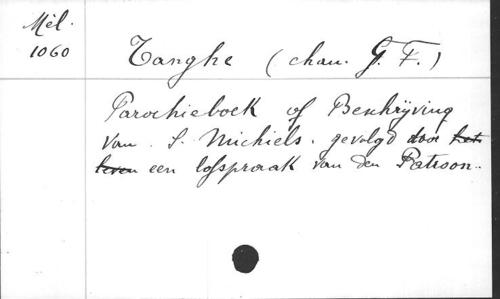 Mél.
1060
Tanghe (chan. G. F.)
Parochieboek of Beschrijving
van S. Michiels. gevolgd door het
leven een lofspraak van den Patroon.